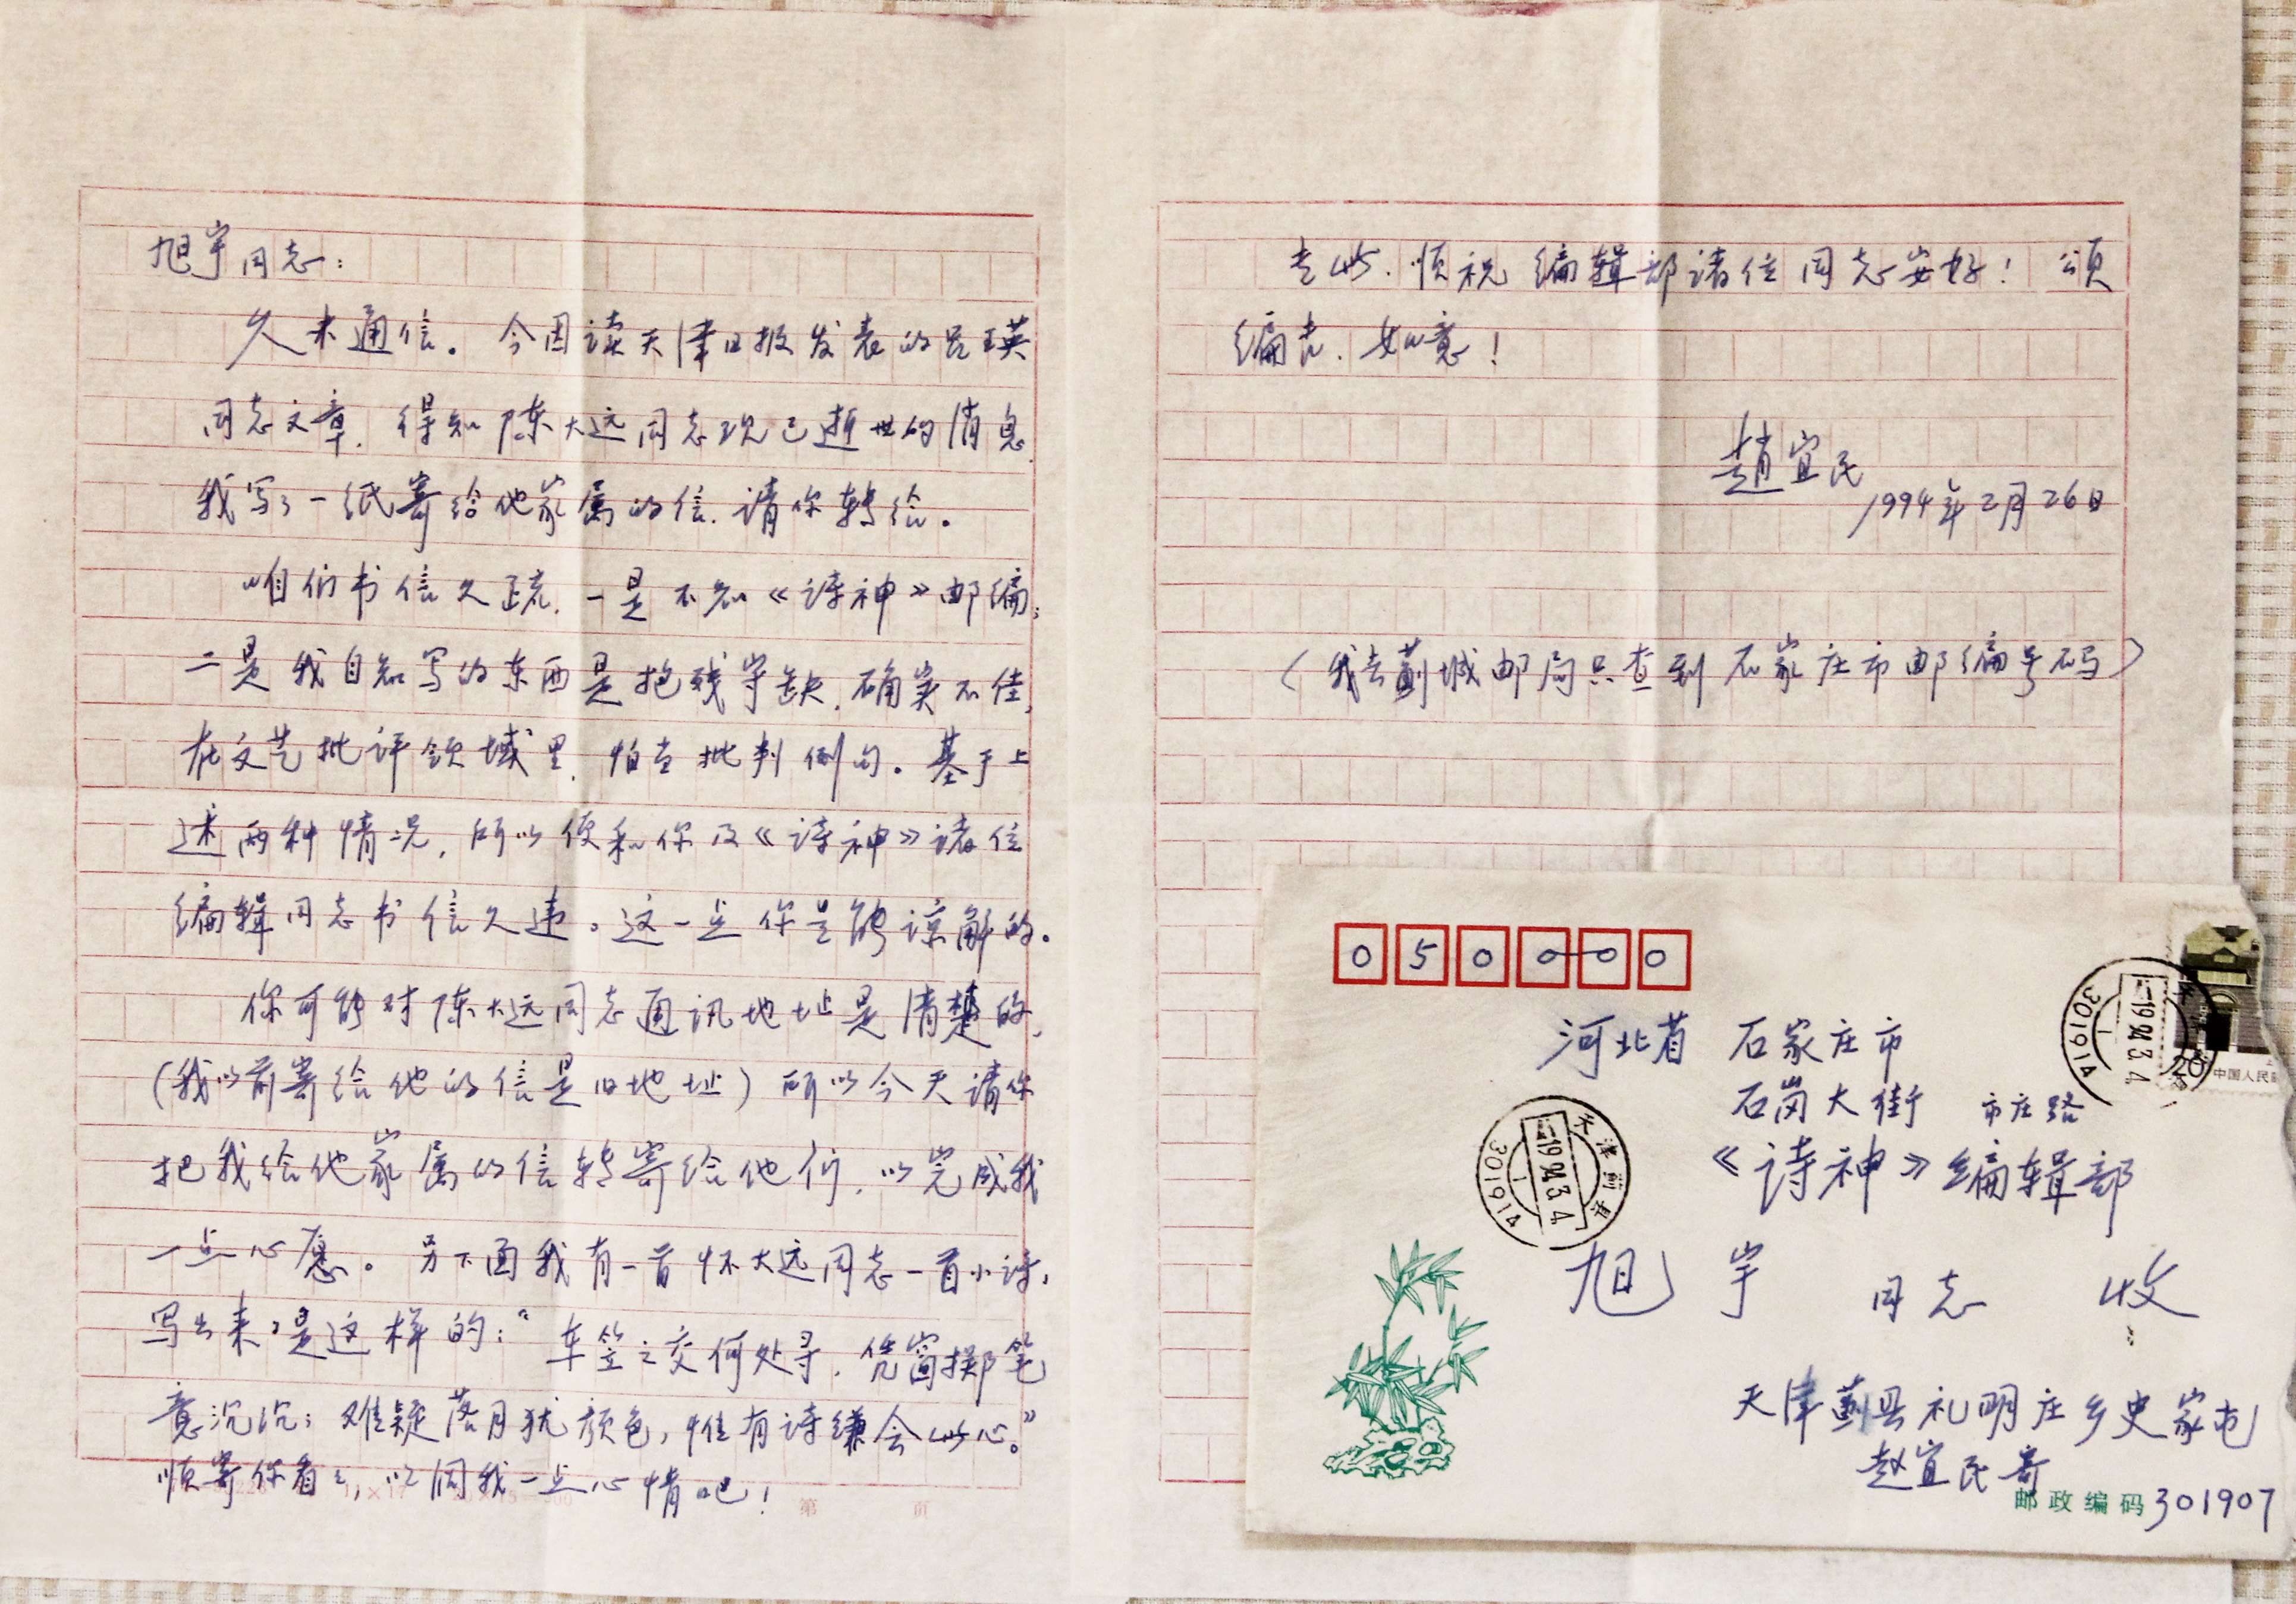 旭宇同志：
久未通信。今因读天津日报发表的吕瑛
同志文章，得知陈大远同志现已逝世的消息，
我写了一纸寄给他家属的信，请你转给。
咱们书信久疏，一是不知《诗神》邮编；
二是我自知写的东西是抱残守缺，确实不佳，
在文艺批评领域里，怕当批判例句。基于上
述两种情况，所以便和你及《诗神》诸位
编辑同志书信久违。这一点你是能谅解的。
你可能对陈大远同志通讯地址是清楚的，
（我以前寄给他的信是旧地址）所以今天请你
把我给他家属的信转寄给他们，以完成我
一点心愿。另下面我有一首怀大远同志一首小诗，
写出来，是这样的：“车笠之交何处寻，凭窗掷笔
意沉沉；难疑落月犹颜色，惟有诗缣会此心。”
顺寄你看看，以开我一点心情吧！
第 页
专此，顺祝编辑部诸位同志安好！颂
编者，如意！
赵宜民
1994年2月26日
（我去蓟城邮局只查到石家庄市邮编号码）
050000
河北省 石家庄市
石岗大街 市庄路
《诗神》编辑部
旭宇 同志 收
天津蓟县礼明庄乡史家屯
赵宜民寄
邮政编码301907
天津蓟县
1994.3.4
301914
20
中国人民邮
301914
1994.3.4